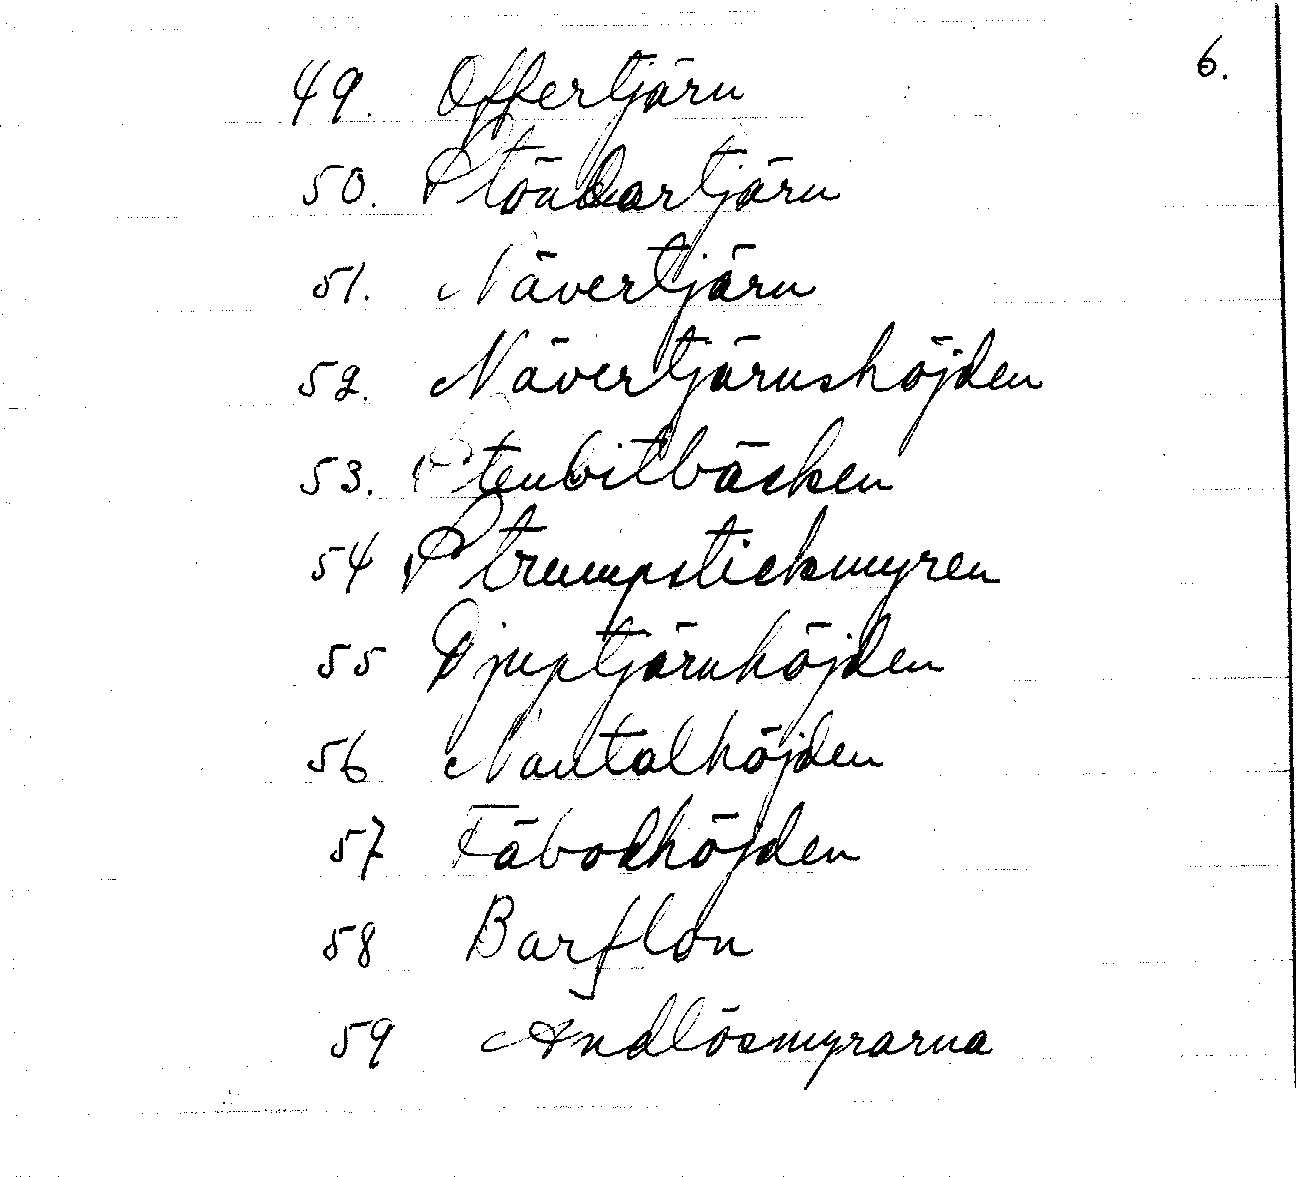 6.
49. Offertjärn
50. Stöndartjärn
51. Nävertjärn
52. Nävertjärnshöjden
53. Stenbitbäcken
54 Strumpstickmyren
55 Djuptjärnhöjden
56 Nautalhöjden
57 Fäbodhöjden
58 Barflon
59 Andlösmyrarna